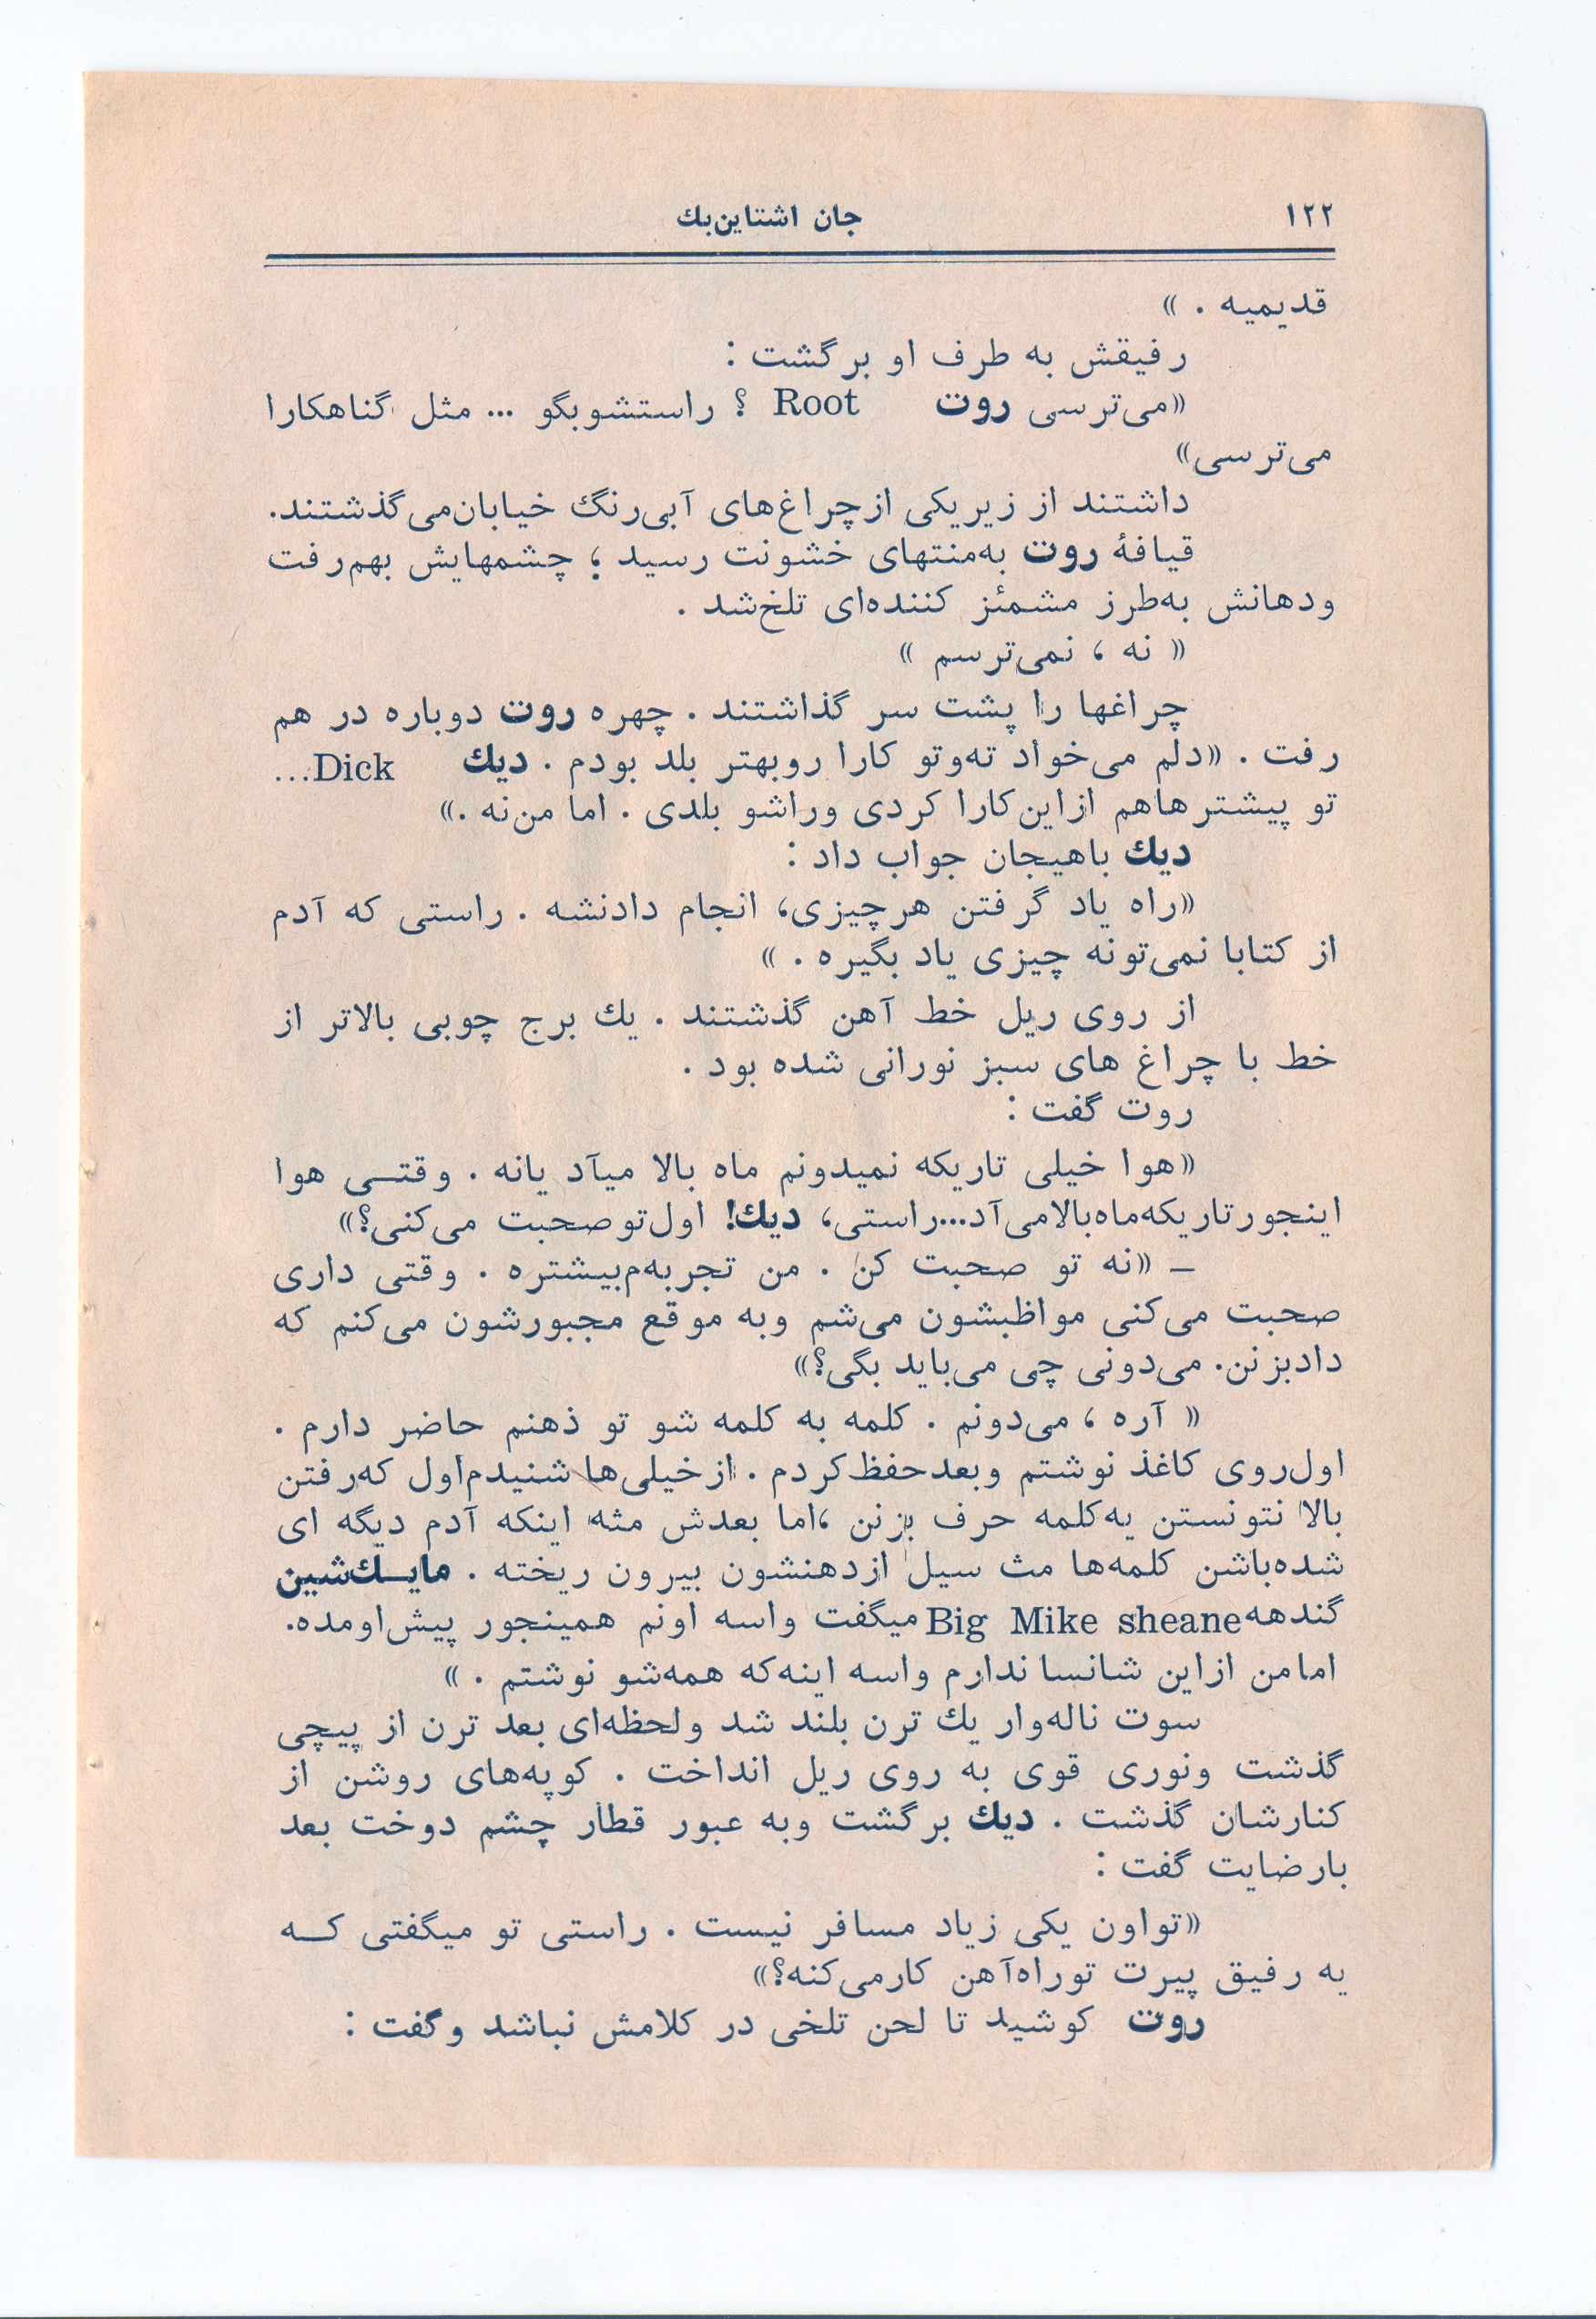 ۱۲۲
جان اشتاین‌بك
قدیمیه . »
رفیقش به طرف او برگشت :
«می‌ترسی روت Root ؟ راستشوبگو ... مثل گناهکارا
می‌ترسی»
داشتند از زیریکی ازچراغ‌های آبی‌رنگ خیابان‌می‌گذشتند.
قیافهٔ روت به‌منتهای خشونت رسید ؛ چشمهایش بهم‌رفت
ودهانش به‌طرز مشمئز کننده‌ای تلخ‌شد .
« نه ، نمی‌ترسم »
چراغها را پشت سر گذاشتند . چهره روت دوباره در هم
رفت . «دلم می‌خواد ته‌وتو کارا روبهتر بلد بودم . دیك Dick...
تو پیشترهاهم ازاین‌کارا کردی وراشو بلدی . اما من‌نه .»
دیك باهیجان جواب داد :
«راه یاد گرفتن هرچیزی، انجام دادنشه . راستی که آدم
از کتابا نمی‌تونه چیزی یاد بگیره . »
از روی ریل خط آهن گذشتند . یك برج چوبی بالاتر از
خط با چراغ های سبز نورانی شده بود .
روت گفت :
«هوا خیلی تاریکه نمیدونم ماه بالا میآد یانه . وقتــی هوا
اینجورتاریکه‌ماه‌بالامی‌آد...راستی، دیك! اول‌توصحبت می‌کنی؟»
– «نه تو صحبت کن . من تجربه‌م‌بیشتره . وقتی داری
صحبت می‌کنی مواظبشون می‌شم وبه موقع مجبورشون می‌کنم که
دادبزنن. می‌دونی چی می‌باید بگی؟»
« آره ، می‌دونم . کلمه به کلمه شو تو ذهنم حاضر دارم .
اول‌روی کاغذ نوشتم وبعدحفظ‌کردم . ازخیلی‌ها شنیدم‌اول که‌رفتن
بالا نتونستن یه‌کلمه حرف بزنن ،اما بعدش مثه اینکه آدم دیگه ای
شده‌باشن کلمه‌ها مث سیل ازدهنشون بیرون ریخته . مایــك‌شین
گندهه Big Mike sheane میگفت واسه اونم همینجور پیش‌اومده.
امامن ازاین شانسا ندارم واسه اینه‌که همه‌شو نوشتم . »
سوت ناله‌وار یك ترن بلند شد ولحظه‌ای بعد ترن از پیچی
گذشت ونوری قوی به روی ریل انداخت . کوپه‌های روشن از
کنارشان گذشت . دیك برگشت وبه عبور قطار چشم دوخت بعد
بارضایت گفت :
«تواون یکی زیاد مسافر نیست . راستی تو میگفتی کــه
یه رفیق پیرت توراه‌آهن کارمی‌کنه؟»
روت کوشید تا لحن تلخی در کلامش نباشد وگفت :